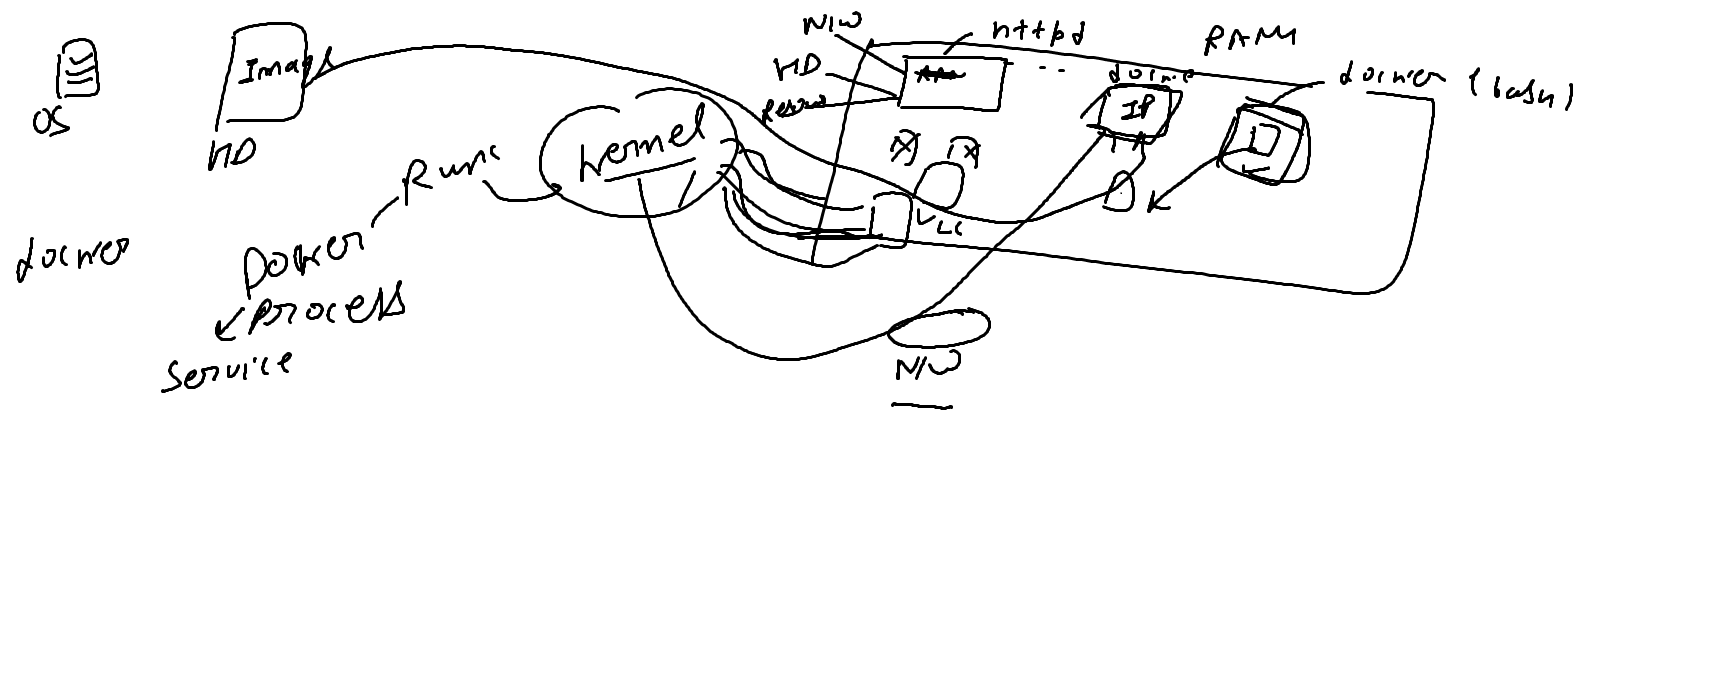 OS
Image
HD
docker
Docker
process
service
Runc
kernel
N/W
HD
httpd
RAM
docker
IP
docker (bash)
VLC
N/W